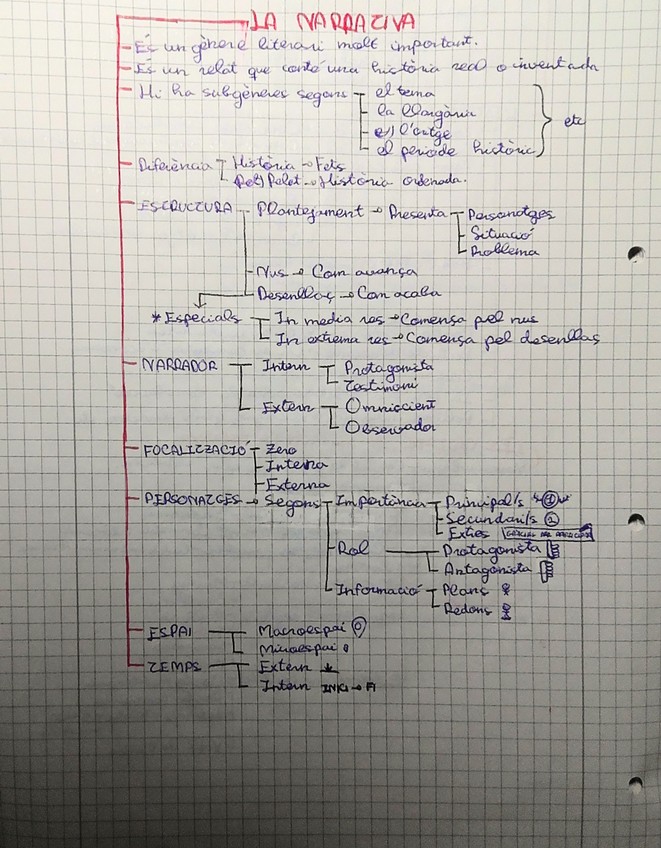 LA NARRATIVA
- És un gènere literari molt important.
- És un relat que conté una història real o inventada
- Hi ha subgèneres segons - el tema
- la llargària
- l'ortge
- el període històric
etc
- Diferència - Història → Fets
Relat → Història ordenada.
- ESTRUCTURA - Plantejament → Presenta - Personatges
- Situació
- Problema
- Nus → Com avança
- Desenllaç → Com acaba
* Especials - In media res → Comensa pel nus
- In extrema res → Comensa pel desenllas
- NARRADOR - Intern - Protagonista
- Testimoni
- Extern - Omniscient
- Observador
- FOCALITZACIÓ - Zero
- Interna
- Externa
- PERSONATGES → Segons - Importància - Principal/s
- Secundari/s 2
- Extres GRÀCIES PER PARTICIPAR
- Rol - Protagonista
- Antagonista
- Informació - Plans
- Redons
- ESPAI - Macroespai
- Microespai
- TEMPS - Extern
- Intern INICI → FI